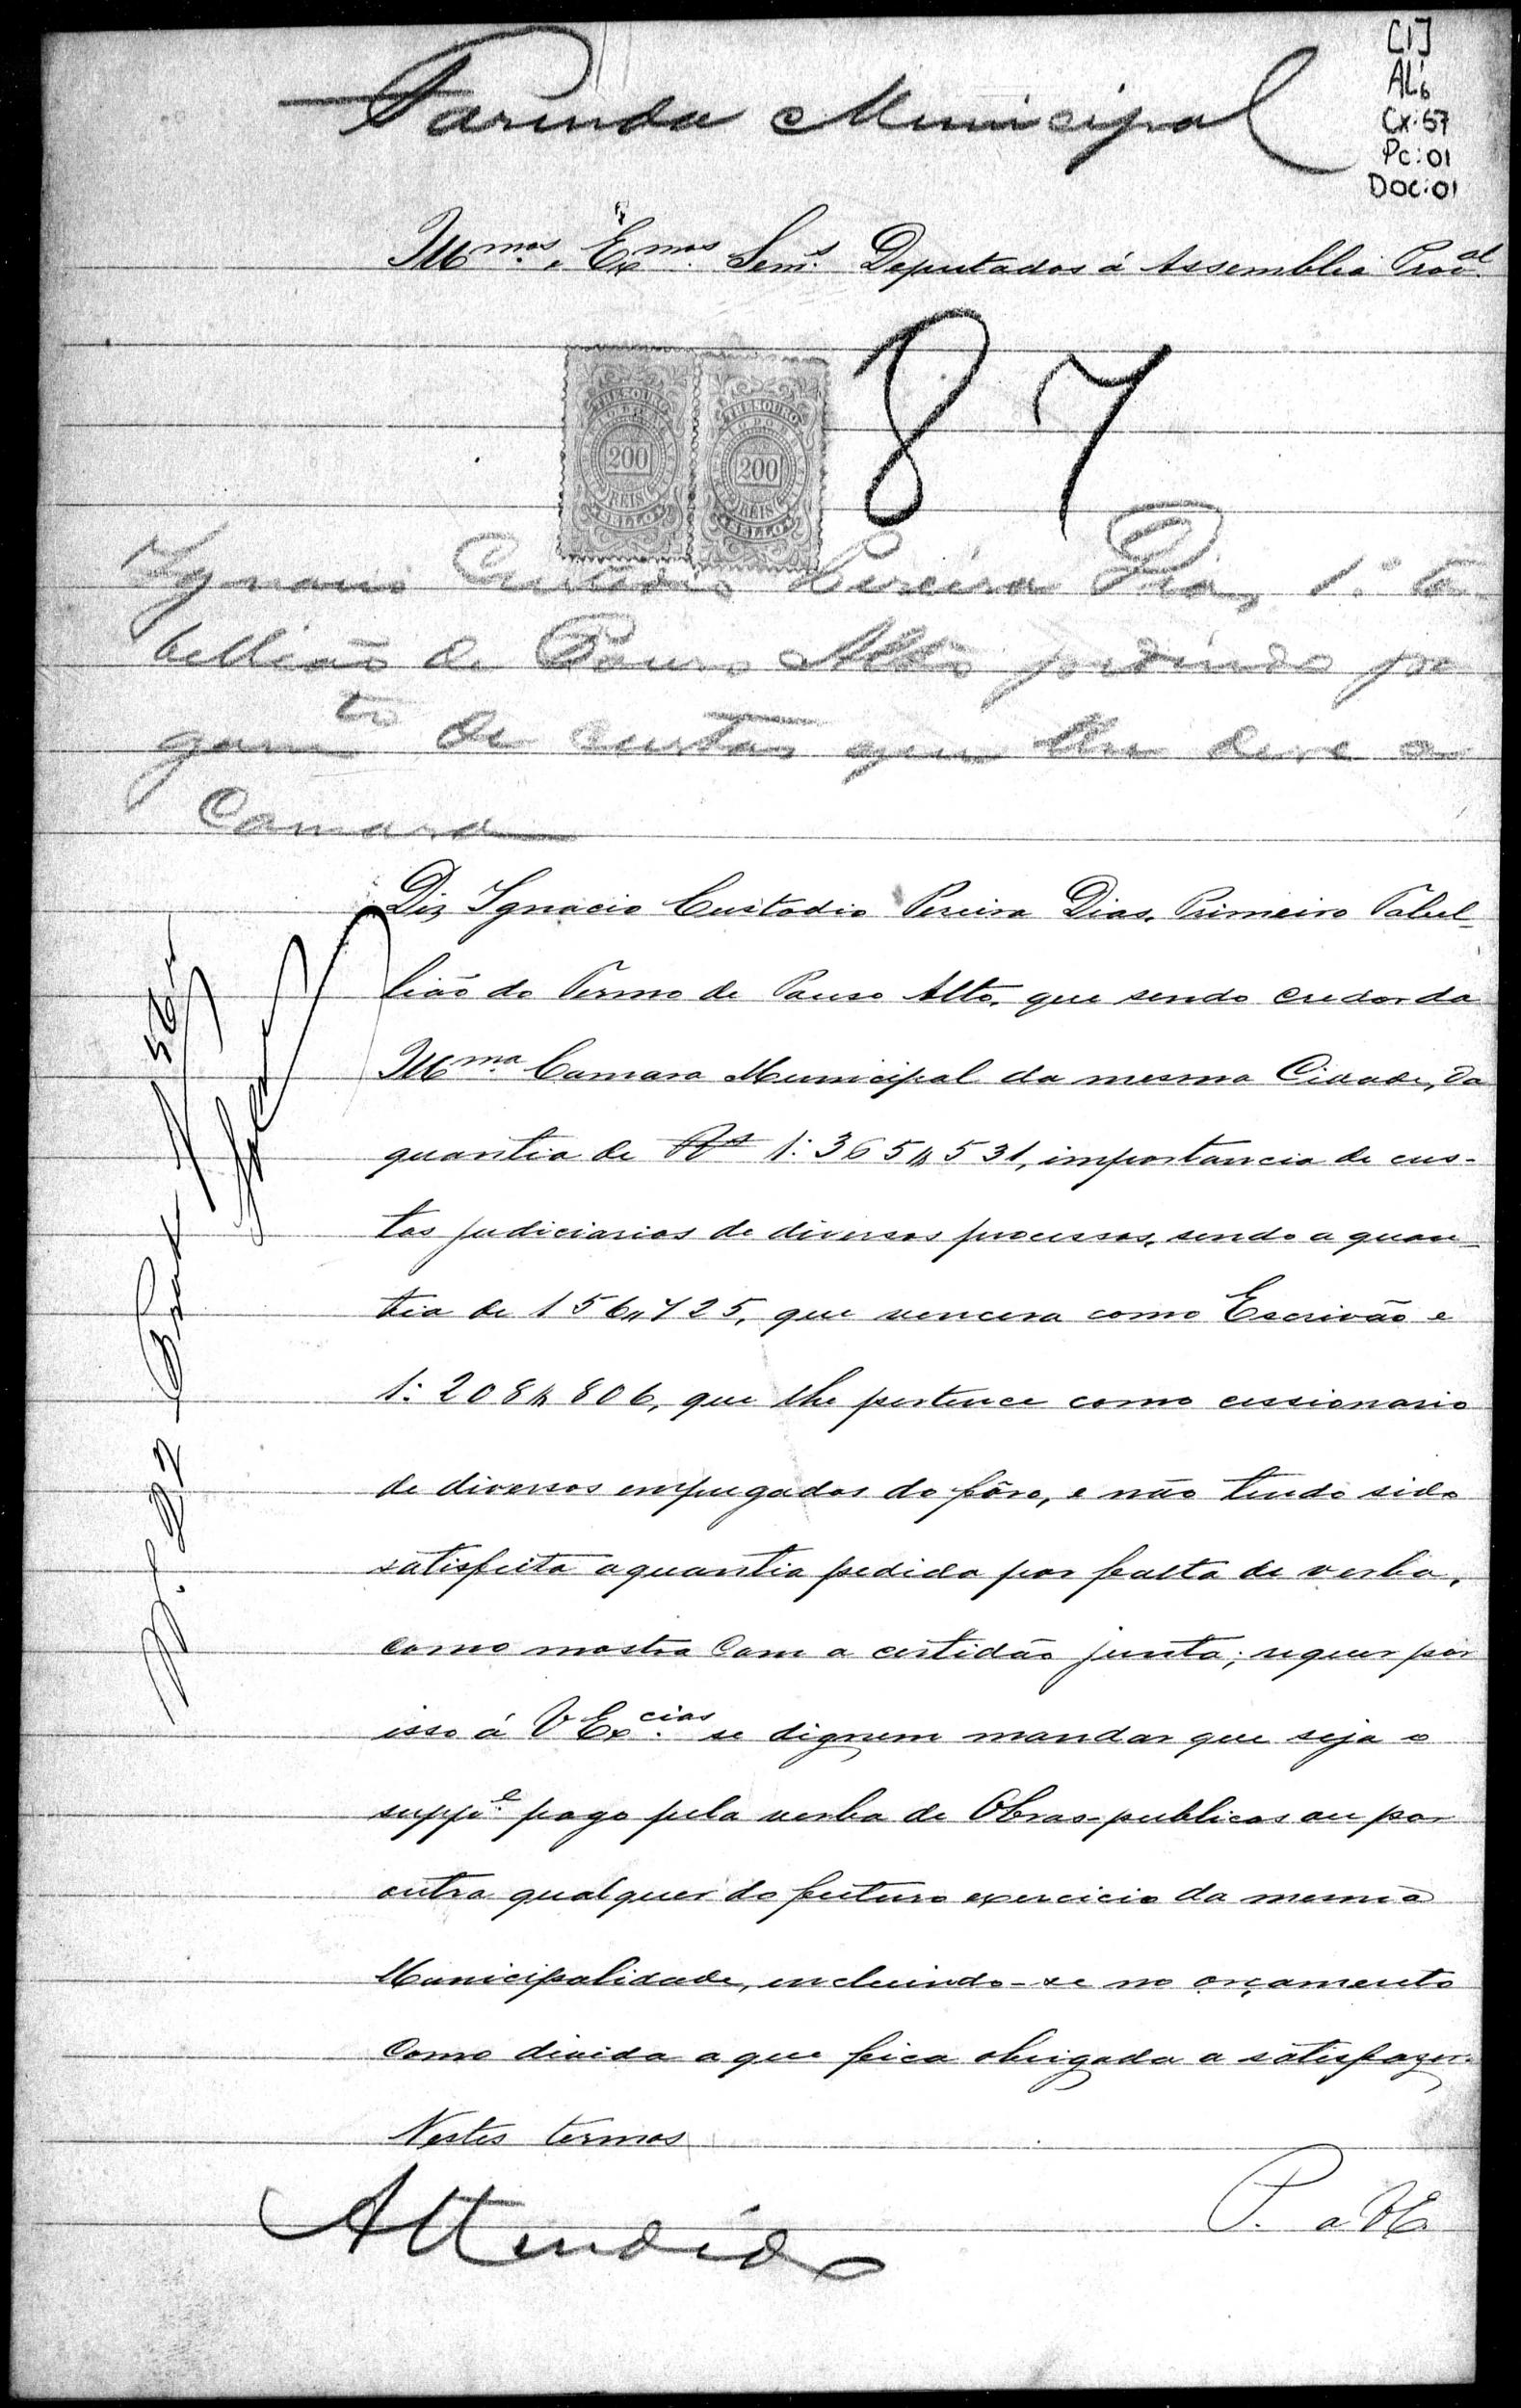 Fazenda Municipal
[1]
AL6
Cx: 57
Pc: 01
Doc: 01
Illmos. e Exmos. Senrs. Deputados á Assemblea Proval.
87
THESOURO
200
REIS
SELLO
THESOURO
200
REIS
SELLO
Ignacio Custodio Pereira Dias, 1.º ta-
bellião de Pouso Alto pedindo pa
gamto de custas que lhe deve a
Camara
Diz Ignacio Custodio Pereira Dias, Primeiro Tabel-
lião do Termo de Pouso Alto, que sendo credor da
Illma. Camara Municipal da mesma Cidade, da
quantia de Rs 1:365$531, importancia de cus-
tas judiciarias de diversos processos, sendo a quan-
tia de 156$725, que vencera como Escrivão e
1:208$806, que lhe pertence como cessionario
de diversos empregados do fôro, e não tendo sido
satisfeita a quantia pedida por falta de verba,
como mostra com a certidão junta; requer por
isso á V Excias. se dignem mandar que seja o
suppe. pago pela verba de Obras publicas ou por
outra qualquer do futuro exercicio da mesma
Municipalidade, incluindo-se no orçamento
como divida a que fica obrigada a satisfazer.
Nestes termos
P. a VE.
Attendido